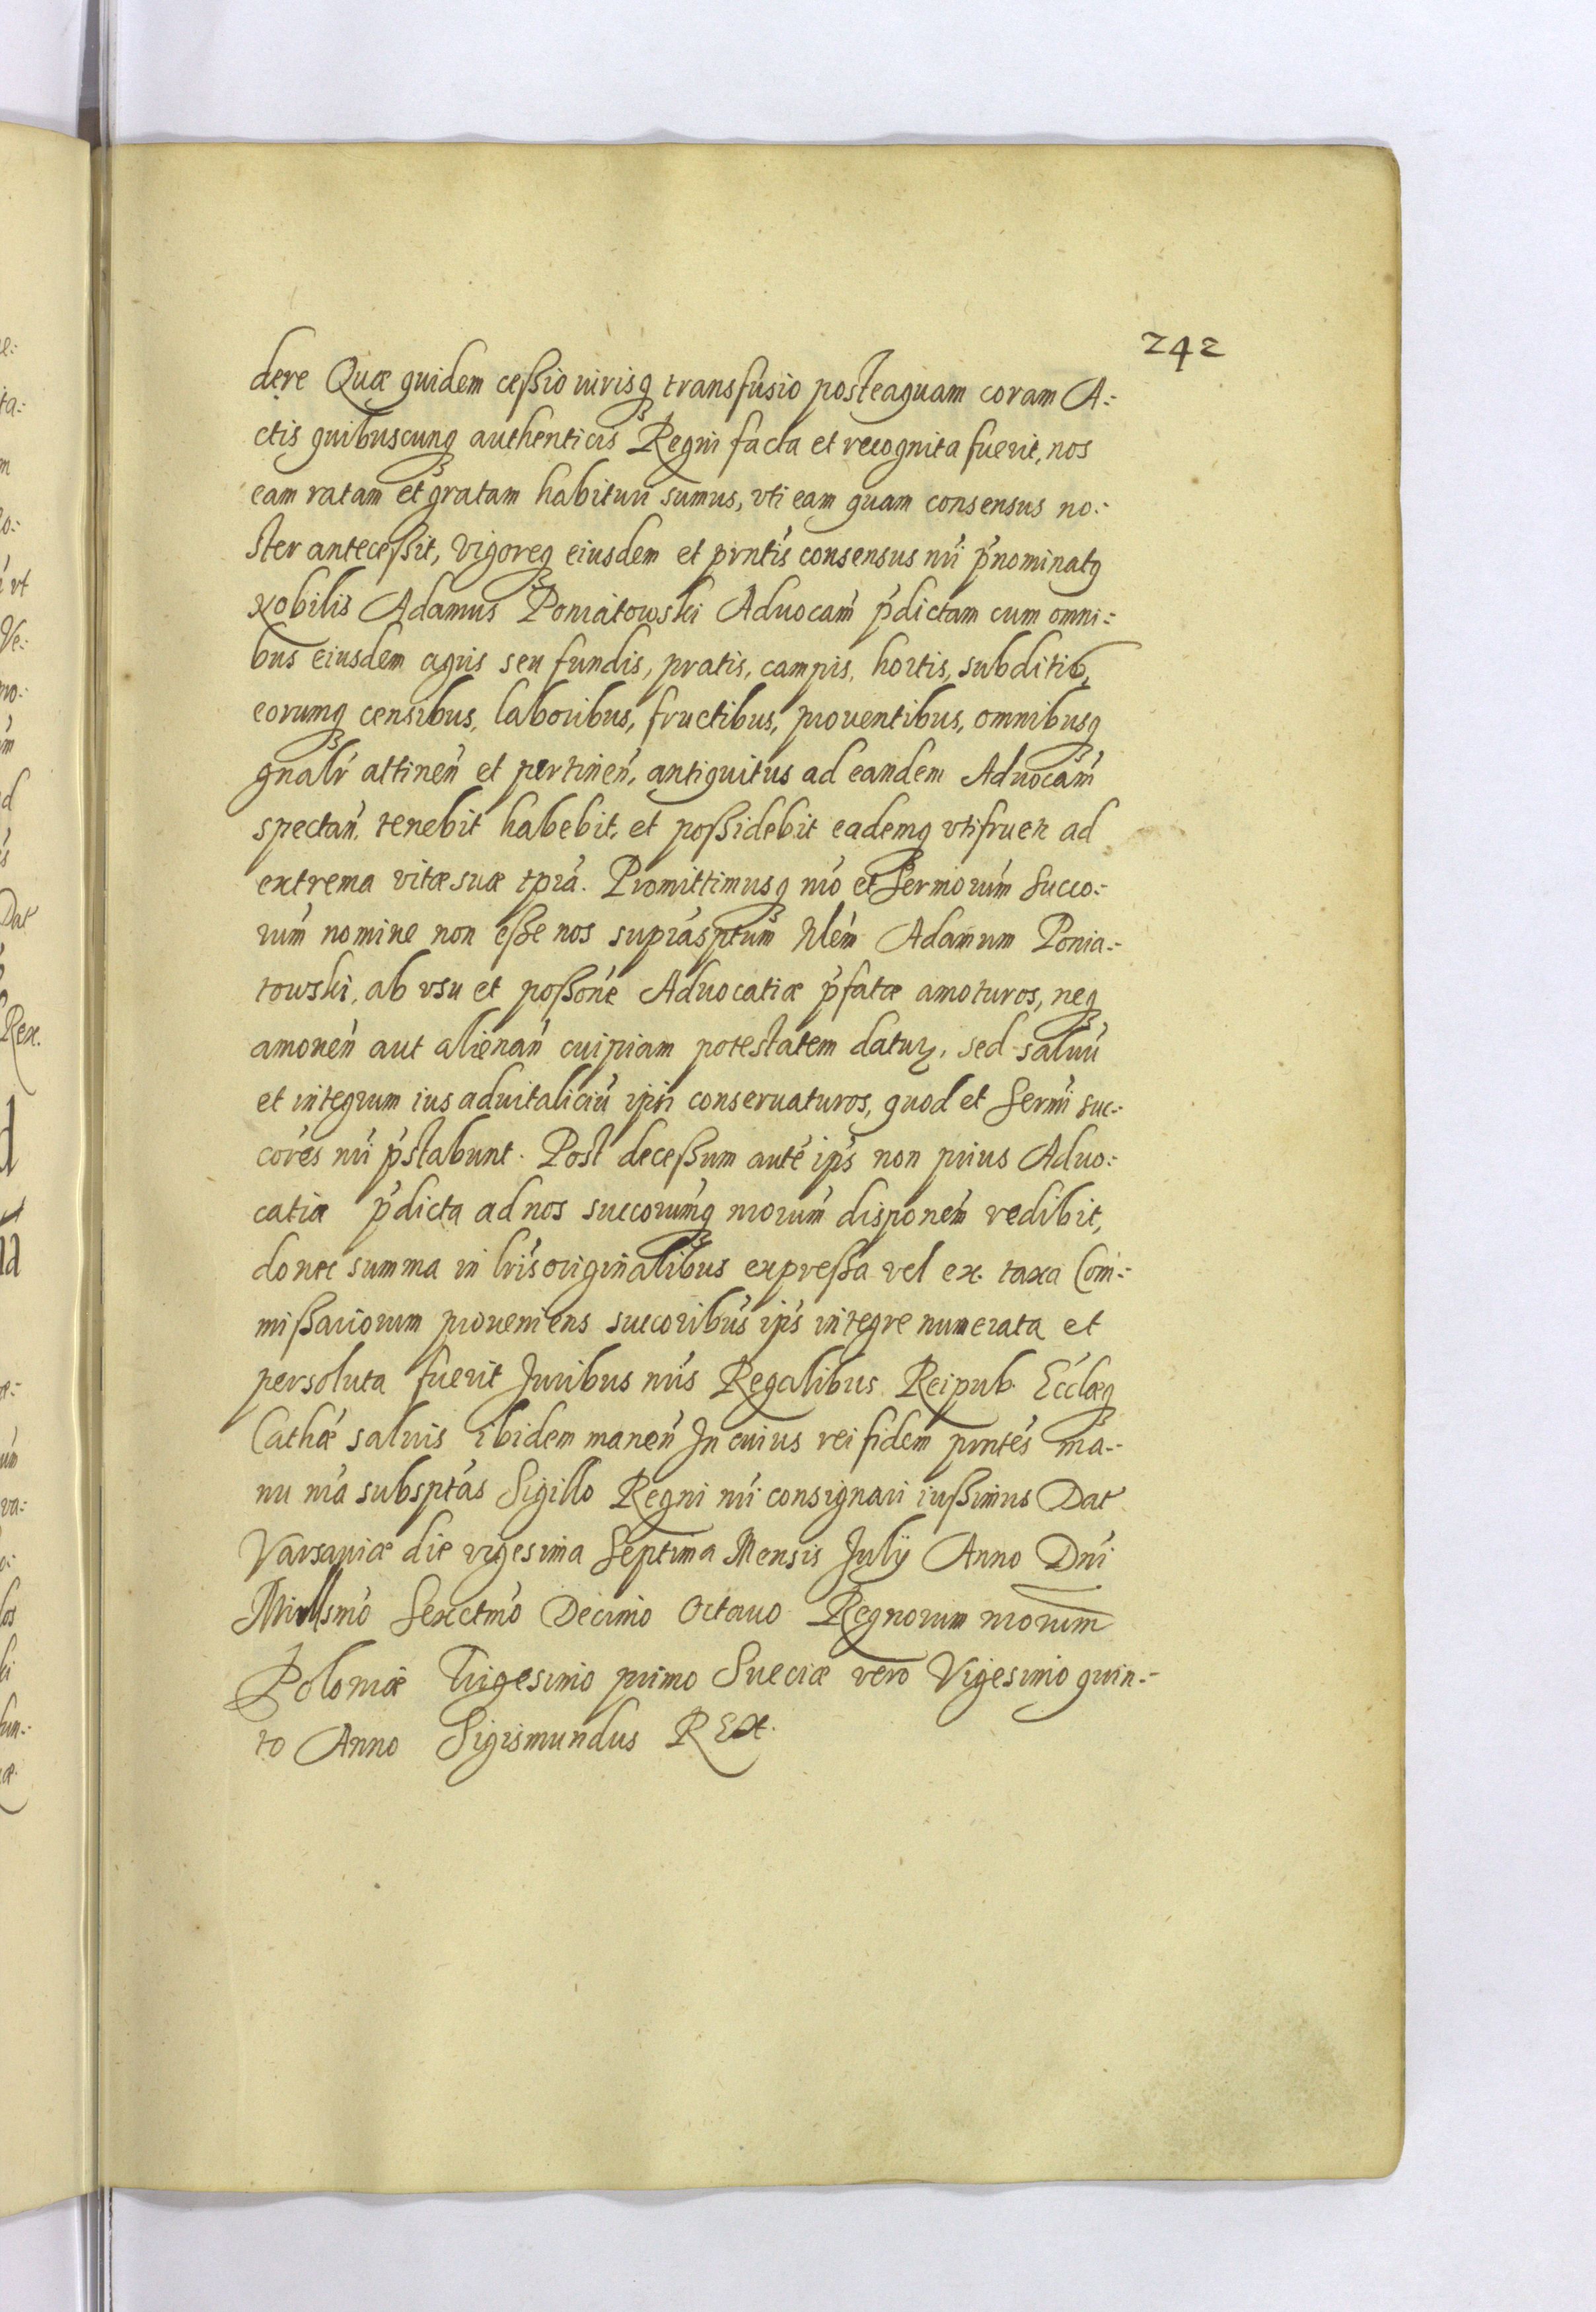 242
dere Quæ quidem ceßio iurisq₃ transfusio posteaquam coram A-:
ctis quibuscunq₃ authenticis Regni facta et recognita fuerit, nos
eam ratam et gratam habituri sumus, vti eam quam consensus no-:
ster anteceßit, vigoreq₃ eiusdem et prntis consensus nri p̃nominatq
Nobilis Adamus Poniatowski Aduocam̃ p̃dictam cum omni-:
bus eiusdem agris seu fundis, pratis, campis, hortis, subditis,
eorumq₃ censibus, laboribus, fructibus, prouentibus, omnibusq₃
gnalr̃ attineñ et pertineñ, antiquitus ad eandem Aduocam̃
spectañ, tenebit habebit, et poßidebit eademq₃ vtifruet̃ ad
extrema vitæ suæ tp̃ra. Promittimusq₃ nr̃o et Sermorum̃ Succo-:
rum̃ nomine non eße nos suprasptum̃ Nlem̃ Adamum Ponia-:
towski, ab vsu et poßone̅ Aduocatiæ p̃fatæ amoturos, neq₃
amoueñ aut alienañ cuipiam potestatem datur₂, sed saluũ
et integrum ius aduitaliciũ ip̃si conseruaturos, quod et Sermĩ suc-:
cores̃ nr̃i p̃stabunt. Post deceßum aute̅ ip̃s non prius Aduo-:
catia p̃dicta ad nos succorumq̃₃ nrorum̃ disponem̃ redibit,
donec summa in lr̃is originalibus expreßa vel ex taxa Com-:
mißariorum proueniens succoribus̃ ip̃s integre numerata et
persoluta fuerit Juribus nr̃is Regalibus Reipub. Ecclæq̃₃
Cathæ̃ saluis ibidem maneñ In cuius rei fidem prntes̃ ma-:
nu nr̃a subsptas̃ Sigillo Regni nr̃i consignari iußimus Dat
Varsauiæ die vigesima Septima Mensis Julij Anno Dñi
Millsmo̅ Sexctmo̅ Decimo Octauo Regnorum nrorum̅
Poloniæ Trigesimo primo Sueciæ vero Vigesimo quin-:
to Anno Sigismundus REX.